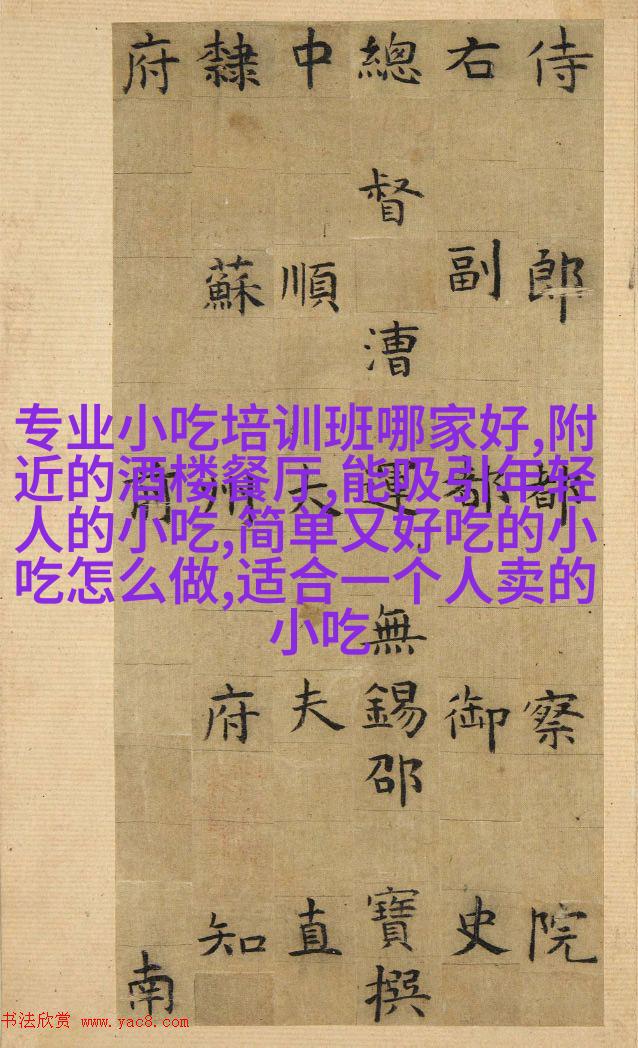 侍郎都察院
右副都御史
總督漕運無錫邵寶撰
中順大夫直
隸蘇州府知
府前南
专业小吃培训班哪家好,附
近的酒楼餐厅,能吸引年轻
人的小吃,简单又好吃的小
吃怎么做,适合一个人卖的
小吃
书法欣赏 www.yac8.com